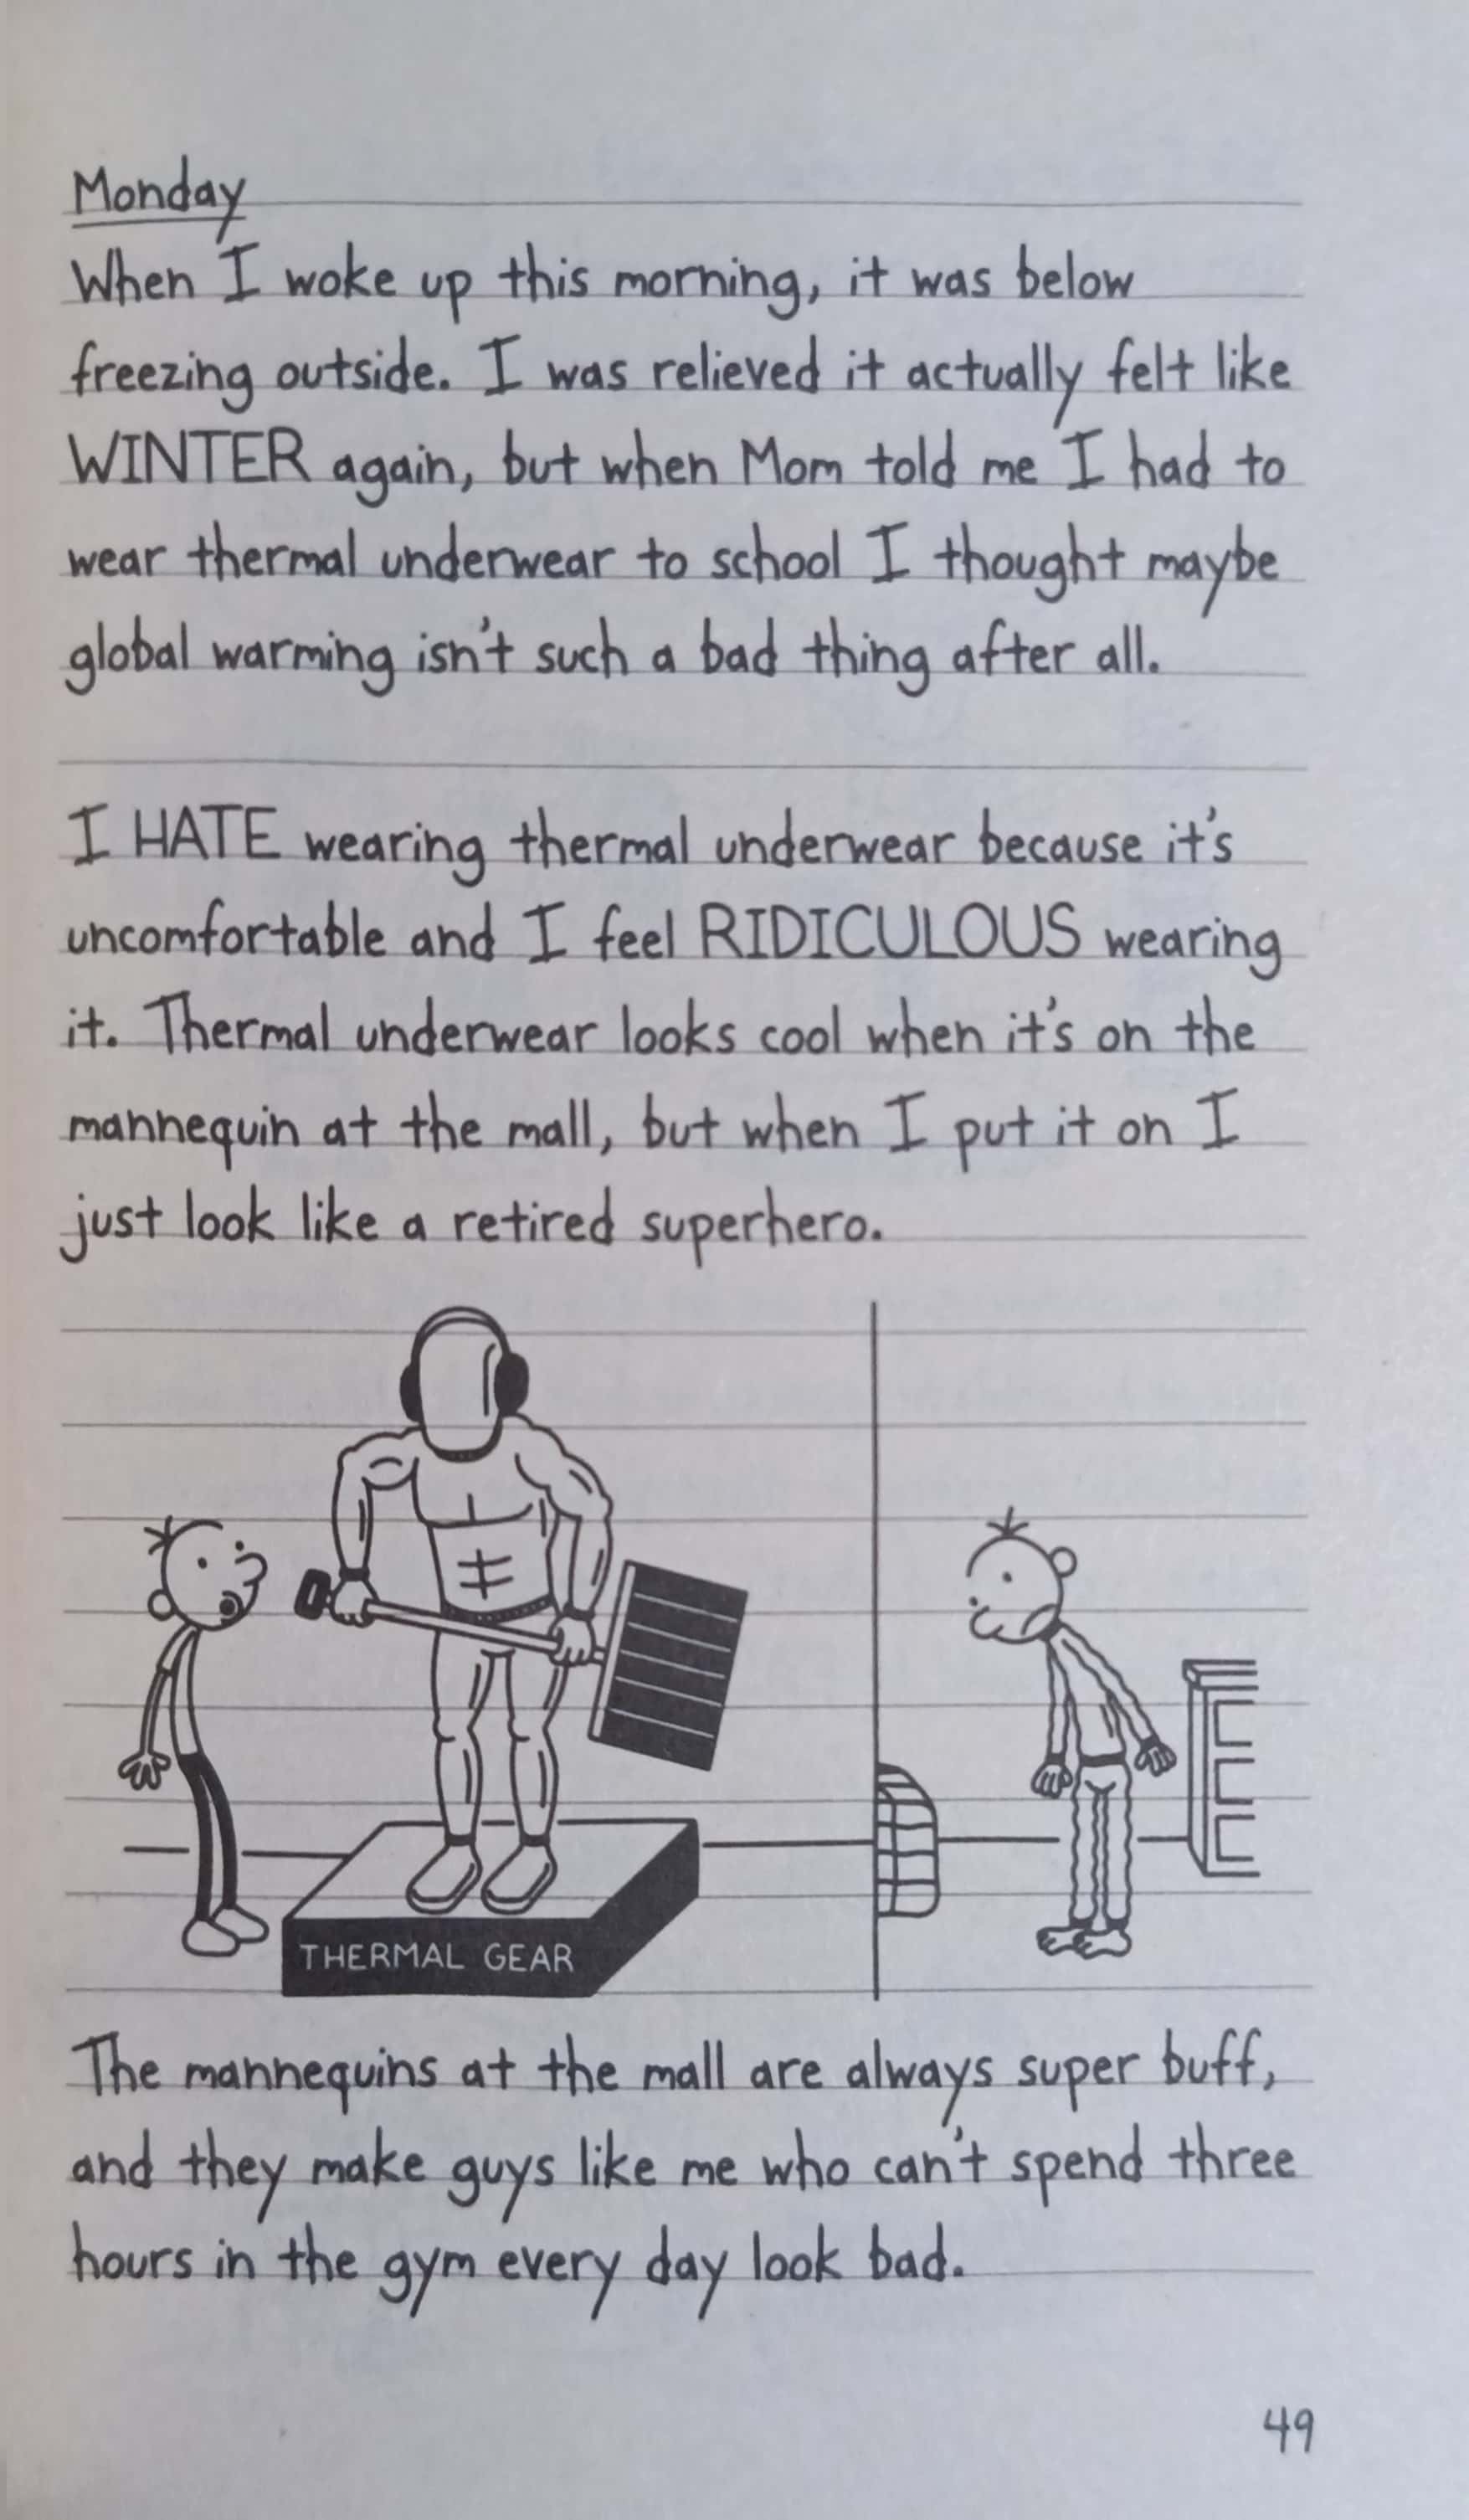 Monday
When I woke up this morning, it was below
freezing outside. I was relieved it actually felt like
WINTER again, but when Mom told me I had to
wear thermal underwear to school I thought maybe
global warming isn't such a bad thing after all.
I HATE wearing thermal underwear because it's
uncomfortable and I feel RIDICULOUS wearing
it. Thermal underwear looks cool when it's on the
mannequin at the mall, but when I put it on I
just look like a retired superhero.
THERMAL GEAR
The mannequins at the mall are always super buff,
and they make guys like me who can't spend three
hours in the gym every day look bad.
49